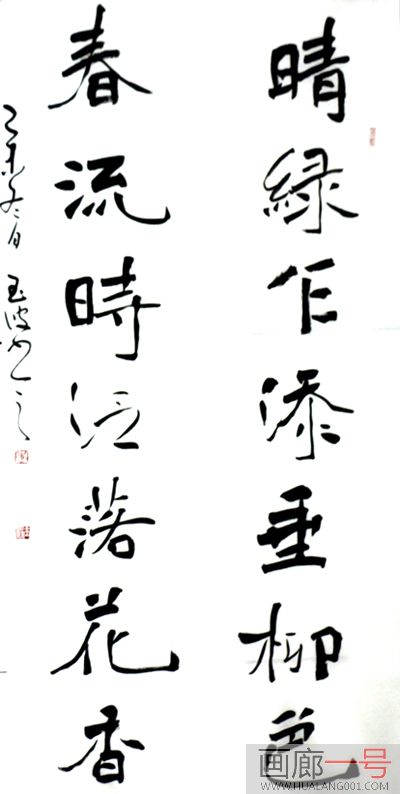 晴緑乍添垂柳色
春流時泛落花香
乙未冬日 玉波书之
画廊一号
WWW.HUALANG001.COM